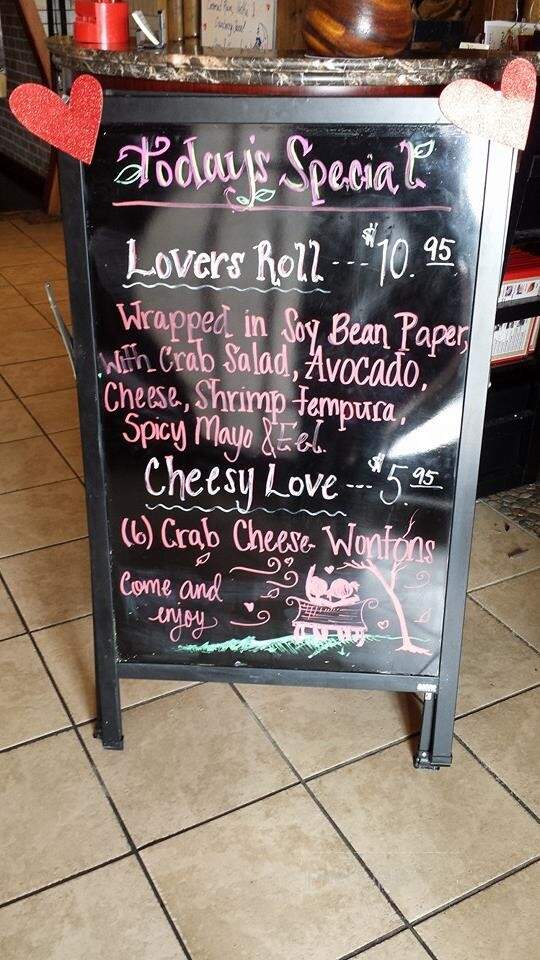 Today's Special
Lovers Roll --- $10.95
Wrapped in Soy Bean Paper,
With Crab Salad, Avocado,
Cheese, Shrimp tempura,
Spicy Mayo & Eel.
Cheesy Love --- $5.95
(6) Crab Cheese Wontons
Come and
enjoy